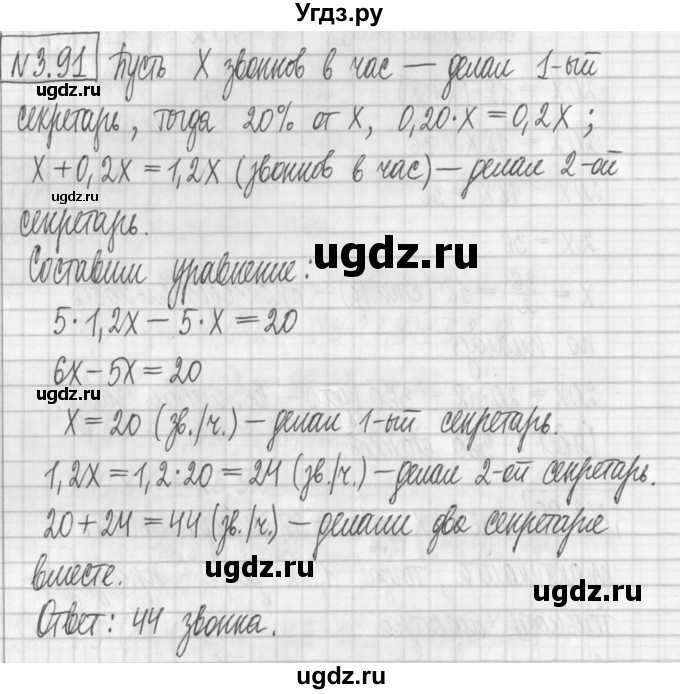 Угдз.ру
№3.91 Пусть X звонков в час — делал 1-ый
секретарь, тогда 20% от X, 0,20·X=0,2X;
ugdz.ru
X+0,2X=1,2X (звонков в час) — делал 2-ой
ugdz.ru
секретарь.
ugdz.ru
Составим уравнение:
5·1,2X—5·X=20
6X—5X=20
ugdz.ru
X=20 (зв./ч.) — делал 1-ый секретарь.
1,2X=1,2·20=24 (зв./ч.) — делал 2-ой секретарь.
20+24=44 (зв./ч.) — делали два секретаря
вместе.
ugdz.ru
Ответ: 44 звонка.
ugdz.ru ugdz.ru